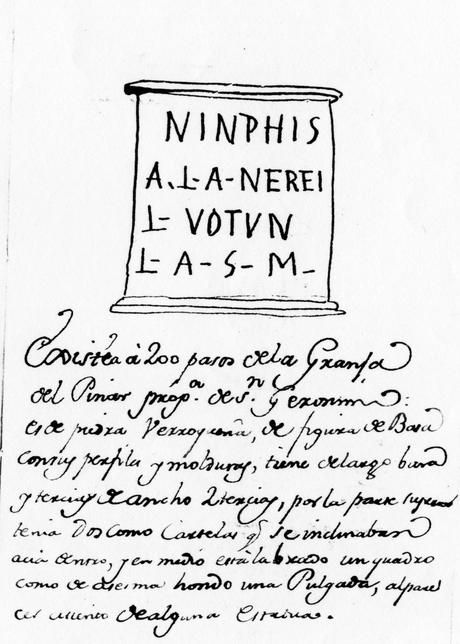 NINPHIS
A. L- A- NEREI
L- VOTVN
L- A- S- M-
Existe a 200 pasos de la Granja
del Pinar prop.a de S.n Geronimo:
es de piedra Verroqueña, de figura de Basa
con sus perfils y molduras, tiene de largo bara
y tercia, de ancho 2 tercias, por la parte superior
tenia dos como Cartelas q.e se inclinaban
acia dentro, y en medio está labrado un quadro
como de asesma hondo una Pulgada, al pare
cer asiento de alguna Estatua.